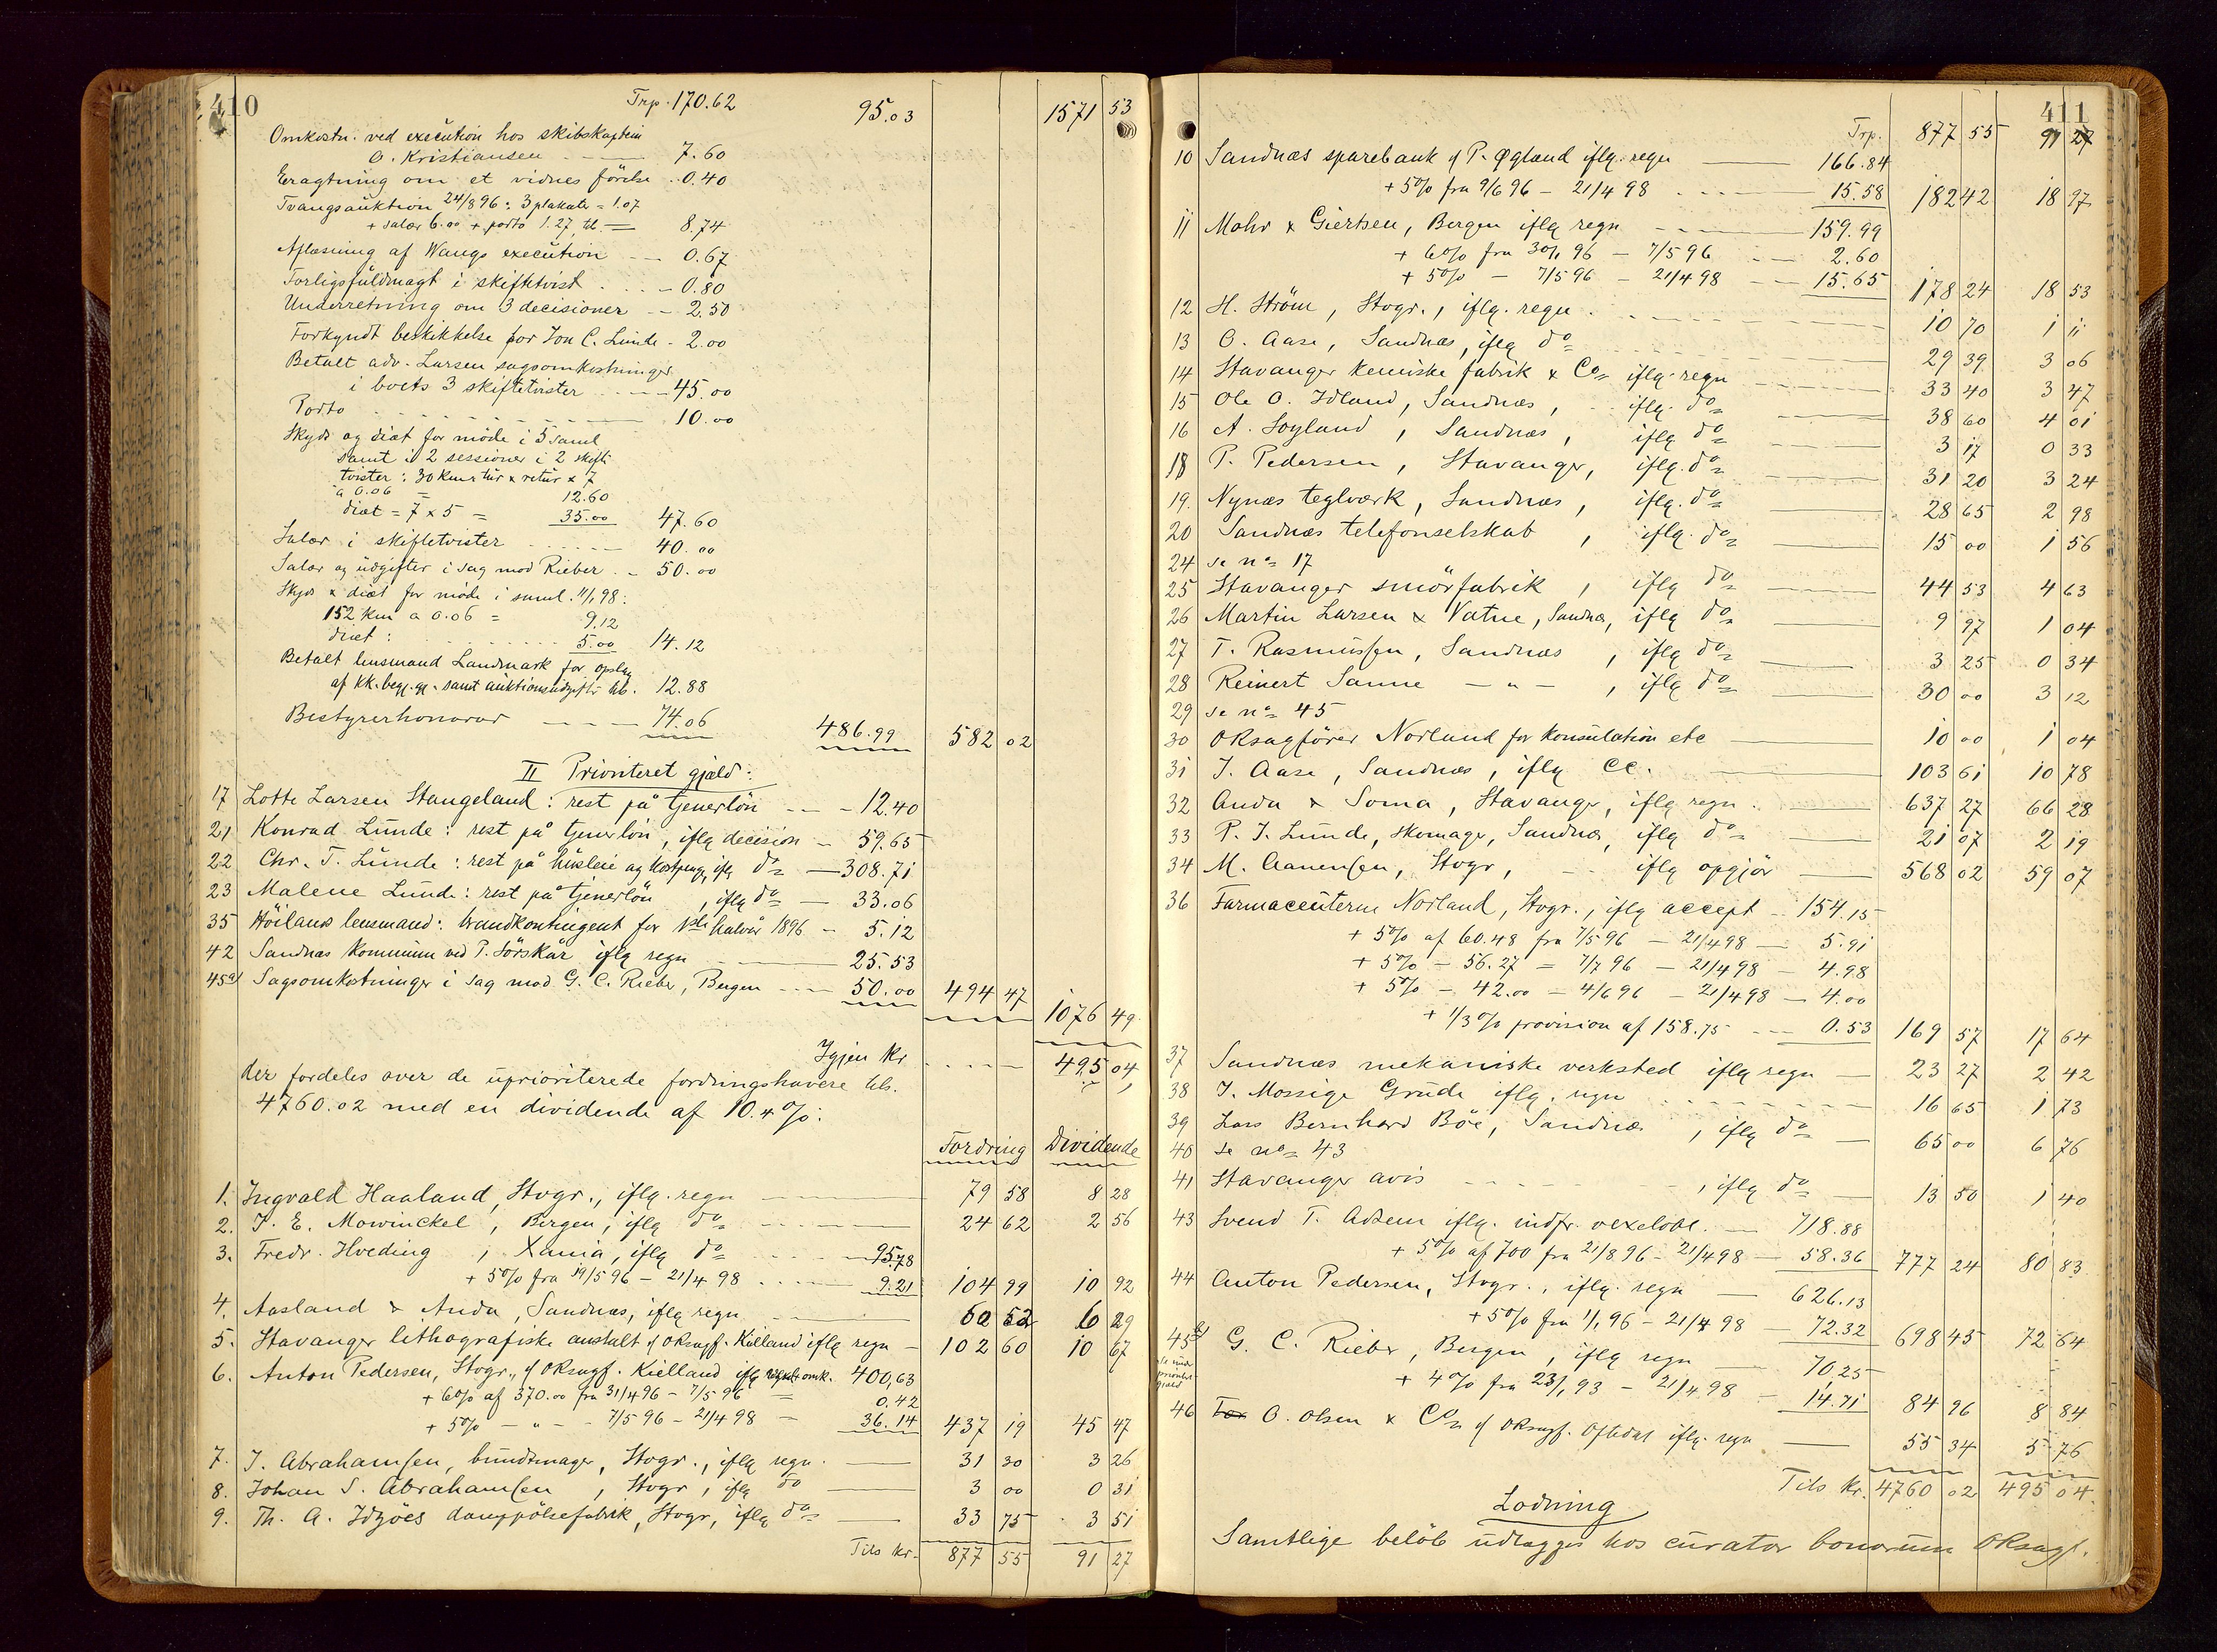 410
Trp. 170.62 95.03 1571 53
Omkostn. ved execution hos skibskaptein
O. Kristiansen 7.60
Eragtning om et vidnes förelse 0.40
Tvangsauktion 24/8 96: 3 plakater = 1.07
+ salær 6.00 + porto 1.27, tils. 8.74
Aflæsning af Wangs execution 0.67
Forligsfuldmagt i skiftetvist 0.80
Underretning om 3 decisioner 2.50
Forkyndt beskikkelse for Jon C. Lunde 2.00
Betalt adv. Larsen sagsomkostninger
i boets 3 skiftetvister 45.00
Porto 10.00
Skyds og diæt for möde i 5 saml.
samt i 2 sessioner i 2 skifte
tvister: 30 km tur & retur x 7
a 0.06 = 12.60
diæt = 7 x 5 = 35.00 47.60
Salær i skiftetvister 40.00
Salær og udgifter i sag mod Rieber 50.00
Skyds & diæt for möde i saml. 11/1 98:
152 km a 0.06 = 9.12
diæt: 5.00 14.12
Betalt lensmand Landmark for opslag
af kk. begj. gj. samt auktionsudgifter tils. 12.88
Bestyrerhonorar 74.06 486.99 582 02
II Prioriteret gjæld:
17 Lotte Larsen Stangeland: rest på tjenerlön 12.40
21 Konrad Lunde: rest på tjenerlön, iflg decision 59.65
22 Chr. T. Lunde: rest på husleie og kostpenge, iflg do 308.71
23 Malene Lunde: rest på tjenerlön, iflg do 33.06
35 Höilands lensmand: brandkontingent for 1ste halvår 1896 5.12
42 Sandnæs kommune ved P. Sörskår iflg regn 25.53
45a) Sagsomkostninger i sag mod G. C. Rieber, Bergen 50.00 494 47 1076 49
Igjen Kr 495 04
der fordeles over de uprioriterede fordringshavere tils.
4760.02 med en dividende af 10.4 %:
Fordring Dividende
1. Ingvald Haaland, Stvgr., iflg. regn 79 58 8 28
2. J. E. Mowinckel, Bergen, iflg do 24 62 2 56
3. Fredr. Hveding, Xania, iflg do 95.78
+ 5% fra 19/5 96 - 21/4 98 9.21 104 99 10 92
4. Aasland & Anda, Sandnæs, iflg regn 60 52 6 29
5. Stavanger lithografiske anstalt v/ oksagf. Kielland iflg regn 102 60 10 67
6. Anton Pedersen, Stvgr., v/ oksagf. Kielland iflg omk. 400,63
+ 6% af 370.00 fra 31/4 96 - 7/5 96 = 0.42
+ 5% - " - 7/5 96 - 21/4 98 = 36.14 437 19 45 47
7. J. Abrahamsen, bundtmager, Stvgr., iflg regn 31 30 3 26
8. Johan S. Abrahamsen, Stvgr, iflg do 3 00 0 31
9. Th. A. Idzöes damppölsefabrik, Stvgr, iflg do 33 75 3 51
Tils kr. 877 55 91 27
411
Trp. 877 55 91 27
10 Sandnæs sparebank v/ P. Øgland iflg. regn 166.84
+ 5% fra 9/6 96 - 21/4 98 15.58 182 42 18 97
11 Mohr & Giertsen, Bergen iflg regn 159.99
+ 6% fra 30/1 96 - 7/5 96 2.60
+ 5% - 7/5 96 - 21/4 98 15.65 178 24 18 53
12 H. Ström, Stvgr., iflg. regn 10 70 1 11
13 O. Aase, Sandnæs, iflg do 29 39 3 06
14 Stavanger kemiske fabrik & Co iflg. regn 33 40 3 47
15 Ole O. Idland, Sandnæs, iflg. do 38 60 4 01
16 A. Soyland, Sandnæs, iflg do 3 17 0 33
18 P. Pedersen, Stavanger, iflg. do 31 20 3 24
19. Nynæs teglværk, Sandnæs, iflg. do 28 65 2 98
20 Sandnæs telefonselskab, iflg. do 15 00 1 56
24 se no 17
25 Stavanger smörfabrik, iflg do 44 53 4 63
26 Martin Larsen & Vatne, Sandnæs, iflg do 9 97 1 04
27 T. Rasmussen, Sandnæs, iflg do 3 25 0 34
28 Reinert Sanne - " -, iflg do 30 00 3 12
29 se no 45
30 Oksagförer Norland for konsulation etc 10 00 1 04
31 J. Aase, Sandnæs, iflg CC. 103 61 10 78
32 Anda & Soma, Stavanger, iflg regn. 637 27 66 28
33 P. J. Lunde, skomager, Sandnæs, iflg do 21 07 2 19
34 M. Aanensen, Stvgr, iflg opgjör 568 02 59 07
36 Farmaceuterne Norland, Stvgr., iflg accept 154.15
+ 5% af 60.48 fra 7/5 96 - 21/4 98 5.91
+ 5% - 56.27 = 7/7 96 - 21/4 98 - 4.98
+ 5% - 42.00 = 4/6 96 - 21/4 98 - 4.00
+ 1/3% provision af 158.75 0.53 169 57 17 64
37 Sandnæs mekaniske verksted iflg regn 23 27 2 42
38 J. Mossige Grude iflg. regn 16 65 1 73
39 Lars Bernhard Böe, Sandnæs, iflg do 65 00 6 76
40 se no 43
41 Stavanger avis, iflg do 13 50 1 40
43 Svend T. Adsem iflg. indfr. vexelobl. 718.88
+ 5% af 700 fra 21/8 96 - 21/4 98 58.36 777 24 80 83
44 Anton Pedersen, Stvgr., iflg. regn 626.13
+ 5% fra 1/1 96 - 21/4 98 72.32 698 45 72 64
45b) G. C. Rieber, Bergen, iflg regn 70,25
se under prioritet gjæld
+ 4% fra 23/1 93 - 21/4 98 14.71 84 96 8 84
46 O. Olsen & Co v/ oksagf. Oftedal iflg. regn 55 34 5 76
Tils Kr. 4760 02 495 04
Lodning
Samtlige belöb udlægges hos curator bonorum oksagf.